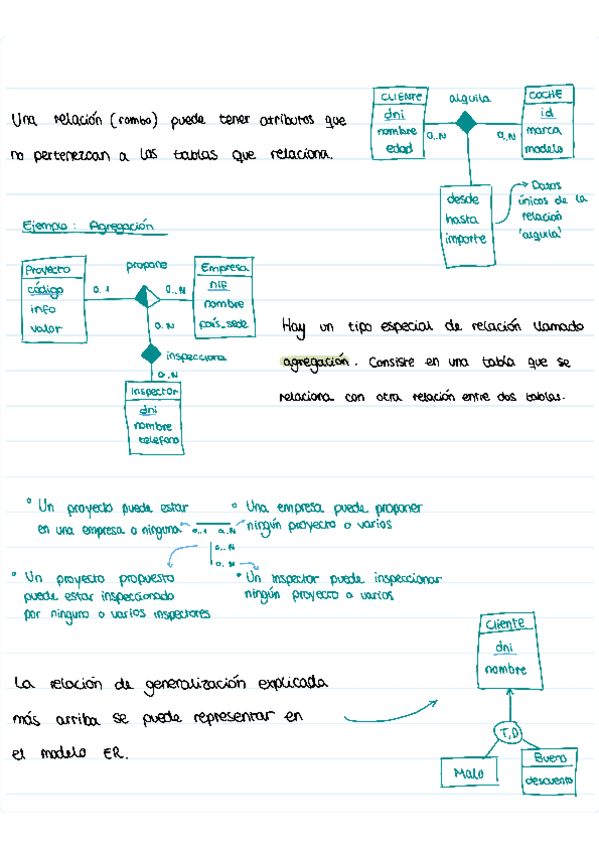 Una relación (rombo) puede tener atributos que
no pertenezcan a las tablas que relaciona.
CLIENTE
dni
nombre
edad
alquila
0..N
0..N
COCHE
id
marca
modelo
desde
hasta
importe
Datos
únicos de la
relación
'alquila'
Ejemplo: Agregación
Proyecto
código
info
valor
propone
0..1
0..N
Empresa
NIF
nombre
país_sede
0..N
inspecciona
0..N
Inspector
dni
nombre
telefono
Hay un tipo especial de relación llamado
agregación. Consiste en una tabla que se
relaciona con otra relación entre dos tablas.
° Un proyecto puede estar
en una empresa o ninguna
° Una empresa puede proponer
ningún proyecto o varios
0..1 0..N
0..N
0..N
° Un proyecto propuesto
puede estar inspeccionado
por ninguno o varios inspectores
° Un inspector puede inspeccionar
ningún proyecto o varios
La relación de generalización explicada
más arriba se puede representar en
el modelo ER.
Cliente
dni
nombre
T,D
Malo
Bueno
descuento